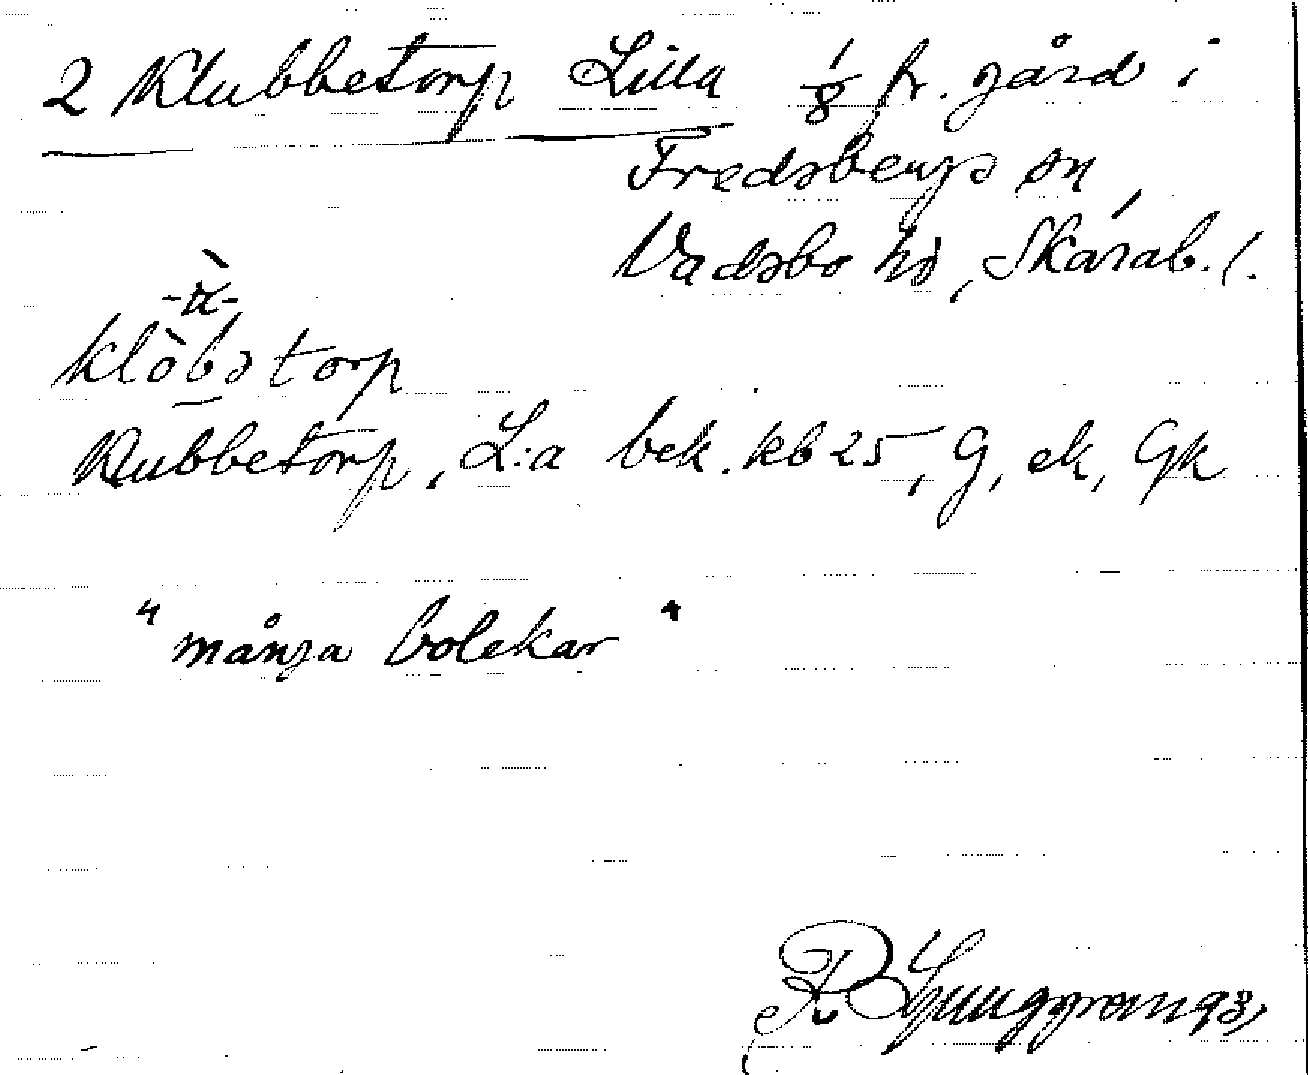 2 Klubbetorp Lilla 1/8 fr. gård i
Fredsbergs sn,
Vadsbo hd, Skarab. l.
klòbə torp
Klubbetorp, L:a bek. kb 25, G, ek, Gk
"många bolekar"